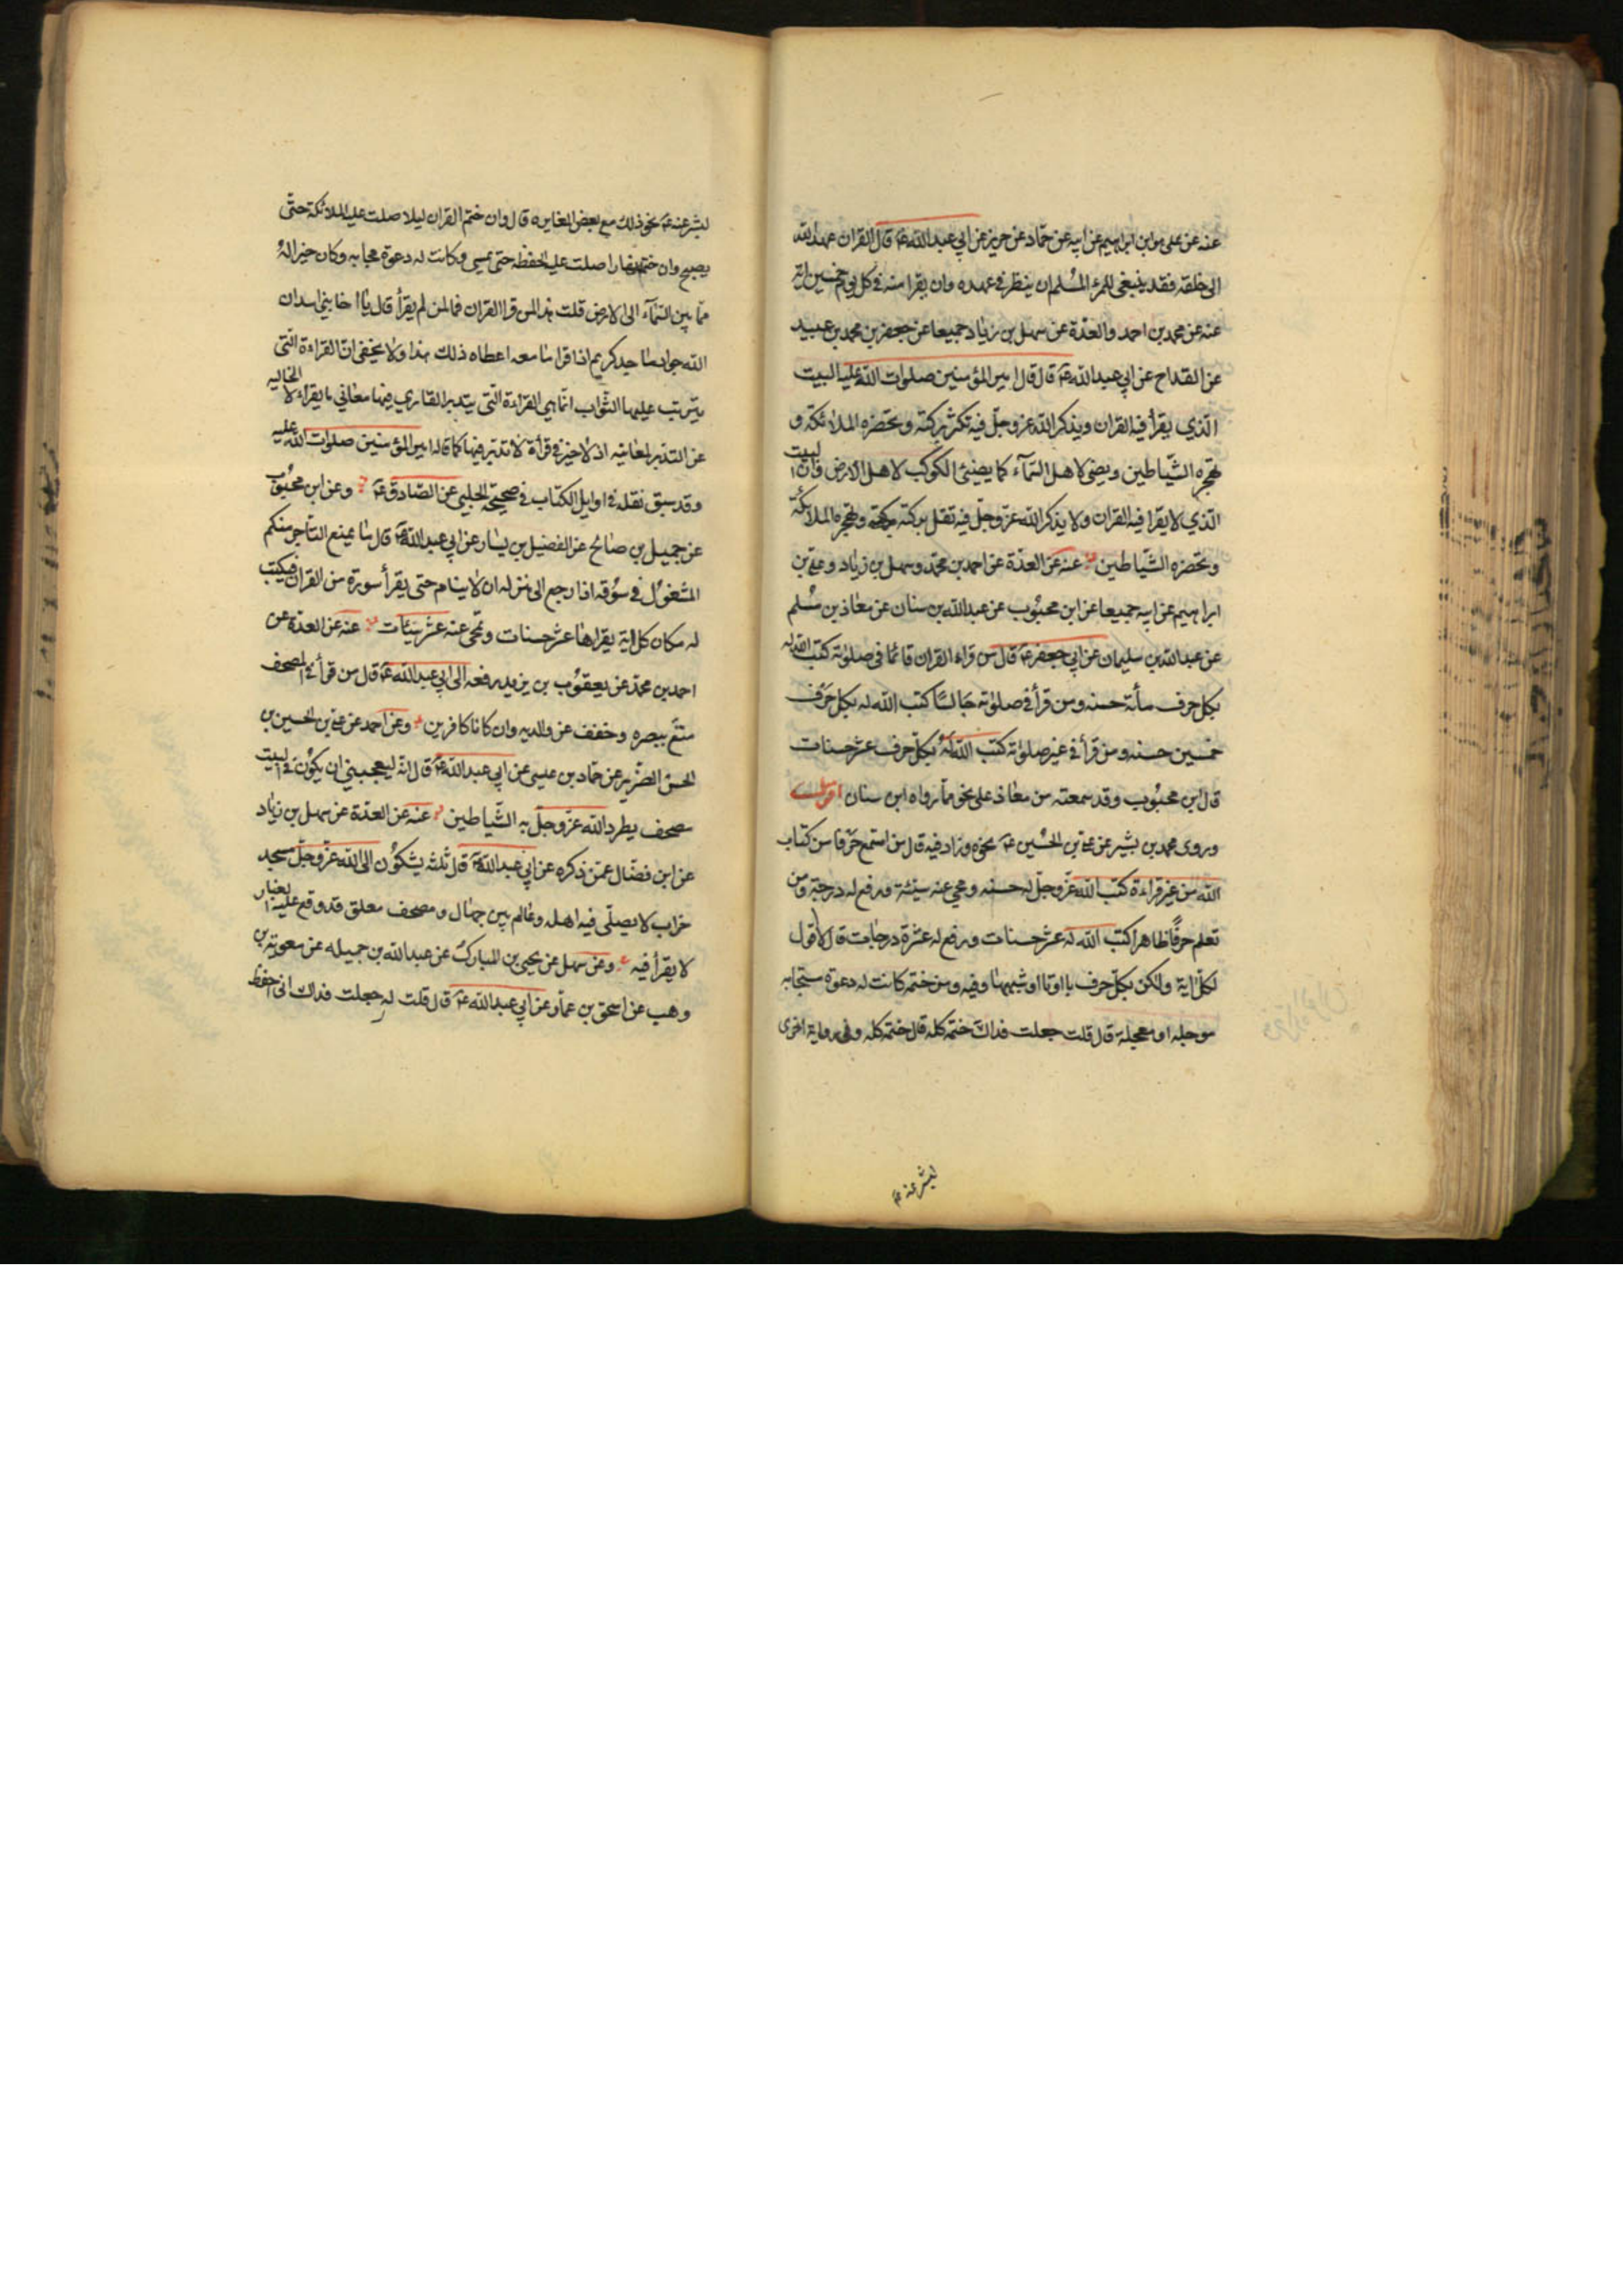 عنه عن على بن ابراهيم عن ابيه عن حمّاد عن حريز عن ابي عبد الله عم قال القران عهد الله
الى خلقه فقد ينبغى للمرء المُسلم ان ينظر فى عهده وان يقرا منه فى كل يوم خمسين اية
عنه عن محمد بن احمد والعدّة عن سهل بن زياد جميعا عن جعفر بن محمد بن عبيد
عن القداح عن ابي عبد الله عم قال قال امير المؤمنين صلوات الله عليه البيت
الذي يقرأ فيه القران ويذكر الله عز وجلّ فيه تكثر بركته وتحضره الملائكة و
تهجره الشّياطين ويضئ لاهل السّمآء كما يضيئ الكوكب لاهل الارض وان البيت
الذي لا يقرا فيه القران ولا يذكر الله عزّ وجلّ فيه تقل بركته وتهجره الملائكة
وتحضره الشّياطين عنه عن العدّة عن احمد بن محمّد وسهل بن زياد وعلي بن
ابراهيم عن ابيه جميعا عن ابن محبُوب عن عبد الله بن سنان عن معاذ بن مُسلم
عن عبد الله بن سليمان عن ابي جعفر عم قال من قراء القران قائما فى صلوته كتب الله له
بكل حرف مأئة حسنه ومن قرأ فى صلوته جالسًا كتب الله له بكل حَرف
خمسين حسنه ومن قرأ فى غير صلوته كتب الله لهُ بكلّ حرف عشر حسنات
قال ابن محبُوب وقد سمعته من معاذ على نحو ممّا رواه ابن سنان
وروى محمد بن بشير عن علي بن الحُسين عم نحوه وزاد فيه قال من استمع حرفا من كتاب
الله من غير قراءة كتب الله عزّ وجلّ له حسنه ومحي عنه سيئة ورفع له درجة ومن
تعلم حرفًا ظاهرا كتب الله له عشر حسنات ورفع له عشرة درجات قال لا اقول
لكلّ اية ولكن بكلّ حرف با او تا او شبههما وفيه ومن ختمه كانت له دعوة مستجابه
موجله او معجلة قال قلت جعلت فداك ختمه كله قال ختمه كله وفى رواية اخرى
لبشر عنه عم
لبشر عنه عم نحو ذلك مع بعض المغايره قال وان ختم القران ليلا صلت عليه الملائكة حتّى
يصبح وان ختمه نهارا صلت عليه الحفظه حتى يمسى وكانت له دعوة مجابه وكان خيرا لهُ
ممّا بين السّمآء الى الارض قلت هذا لمن قرا القران فما لمن لم يقرأ قال يا اخا بني اسد ان
الله جواد ماجد كريم اذا قرا ما معه اعطاه ذلك هذا ولا يخفى انّ القراءة التّى
يترتب عليها الثّواب انّما هي القراءة التّى يتدبر القاري فيها معاني ما يقراء لا الخاليه
عن التدبر لمعانيه اذ لا خير فى قرأة لا تدبّر فيها كما قاله امير المؤمنين صلوات الله عليه
وقد سبق نقله فى اوايل الكتاب فى صحيحة الحلبي عن الصّادق عم وعن ابن محبُوب
عن جميل بن صالح عن الفضيل بن يسار عن ابي عبد الله عم قال ما يمنع التاجر منكم
المشغول فى سُوقه اذا رجع الى منزله ان لا ينام حتى يقرأ سورة من القران فيكتب
له مكان كل اية يقراها عشر حسنات وتمحى عنه عشر سَيّئات عنه عن العدّة عن
احمد بن محمّد عن يعقوُب بن يزيد رفعه الى ابي عبد الله عم قال من قرأ فى المصحف
متّع ببصره وخفف عن والديه وان كانا كافرين وعن احمد عن علي بن الحسين بن
الحسن الضّرير عن حمّاد بن عيسى عن ابي عبد الله عم قال انّه ليعجبنى ان يكوُن فى البيت
مصحف يطرد الله عزّ وجلّ به الشّياطين عنه عن العدّة عن سهل بن زياد
عن ابن فضّال عمّن ذكره عن ابي عبد الله عم قال ثلثه يشكوُن الى الله عزّ وجلّ مسجد
خراب لا يصلّى فيه اهله وعالم بين جهال ومصحف معلق قد وقع عليه الغبار
لا يقرأ فيه وعن سهل عن يحيى بن المبارك عن عبد الله بن جميله عن معوية بن
وهب عن اسحق بن عمّار عن ابي عبد الله عم قال قلت له جعلت فداك انى احفظ